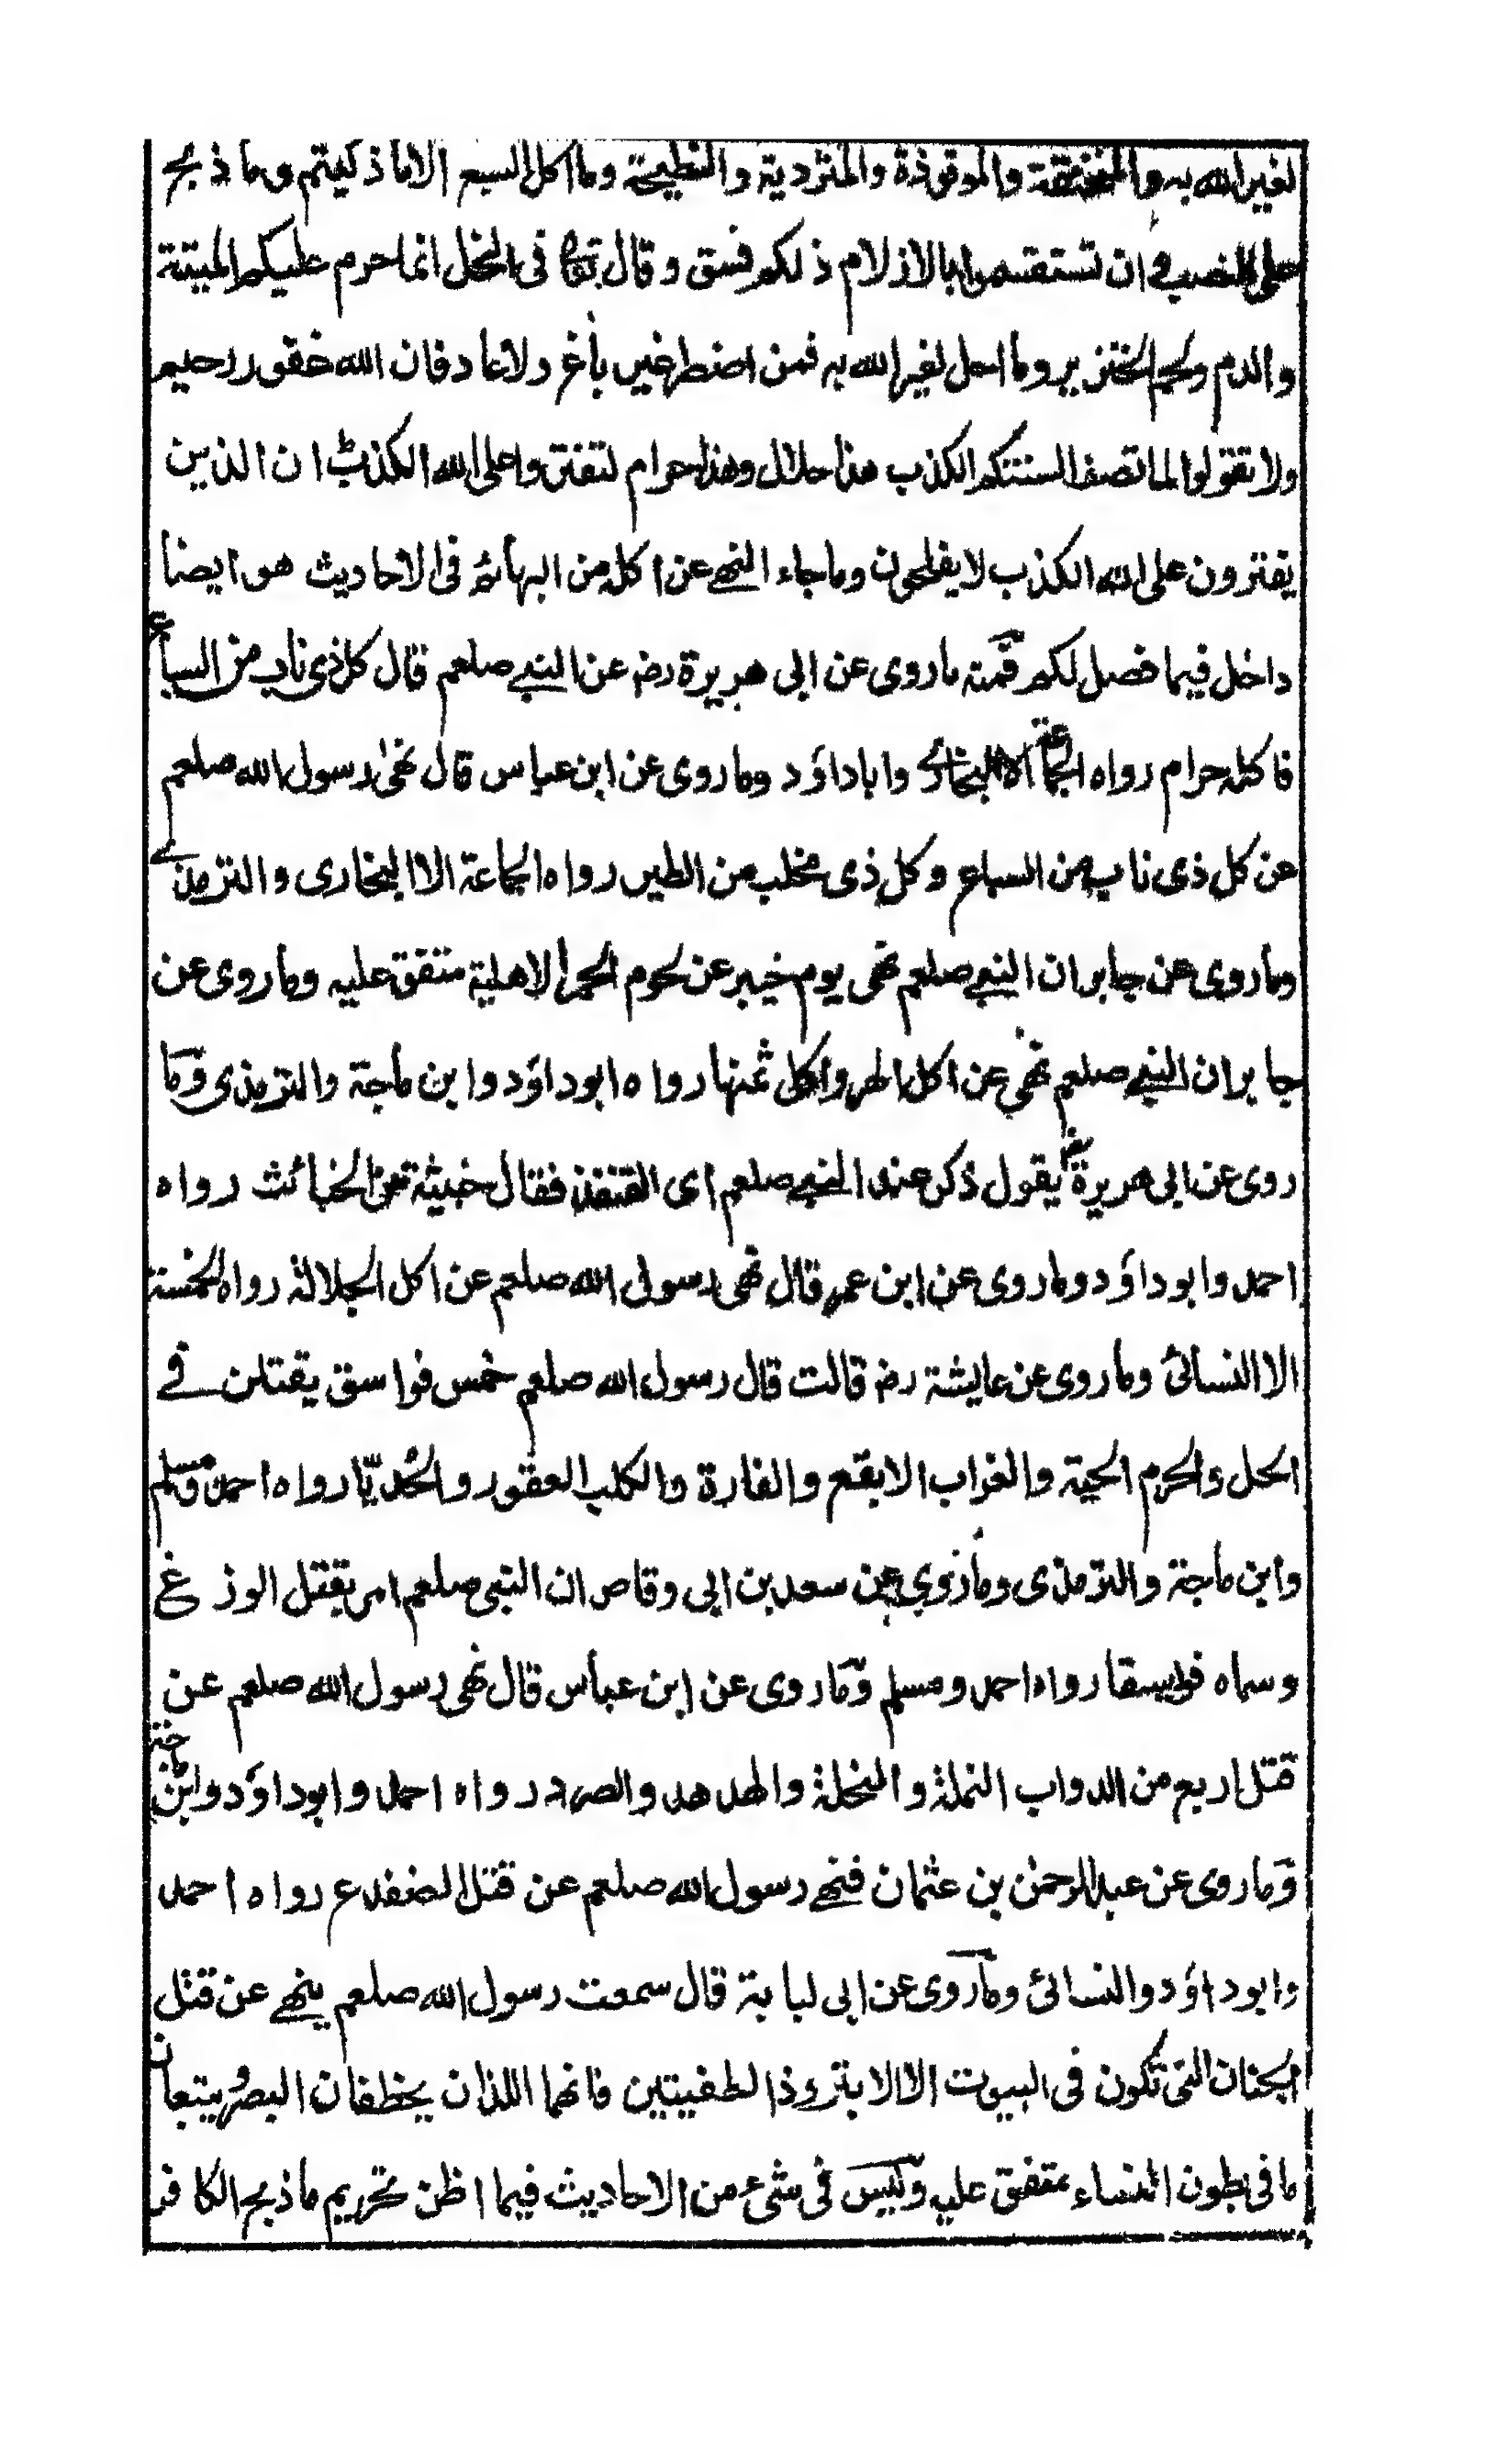 لغير الله به والمنخنقة والموقوذة والمتردية والنطيحة وما اكل السبع الا ما ذكيتم وما ذبح
على النصب وان تستقسموا بالازلام ذلكم فسق وقال تعالى فى النحل انما حرم عليكم الميتة
والدم ولحم الخنزير وما اهل لغير الله به فمن اضطر غير باغ ولا عاد فان الله غفور رحيم
ولا تقولوا لما تصف السنتكم الكذب هذا حلال وهذا حرام لتفتروا على الله الكذب ان الذين
يفترون على الله الكذب لا يفلحون وما جاء النهى عن اكله من البهائم فى الاحاديث هو ايضا
داخل فيما فصل لكم فمنه ما روى عن ابى هريرة رضـ عن النبى صلعم قال كل ذى ناب من السباع
فاكله حرام رواه الجماعة الا البخارى وابا داؤد وما روى عن ابن عباس قال نهى رسول الله صلعم
عن كل ذى ناب من السباع وكل ذى مخلب من الطير رواه الجماعة الا البخارى والترمذى
وما روى عن جابر ان النبى صلعم نهى يوم خيبر عن لحوم الحمر الاهلية متفق عليه وما روى عن
جابر ان النبى صلعم نهى عن اكل الهر واكل ثمنها رواه ابو داؤد وابن ماجة والترمذى وما
روى عن ابى هريرة يقول ذكر عند النبى صلعم اى القنفذ فقال خبيثة من الخبائث رواه
احمد وابو داؤد وما روى عن ابن عمر قال نهى رسول الله صلعم عن اكل الجلالة رواه الخمسة
الا النسائى وما روى عن عايشة رضـ قالت قال رسول الله صلعم خمس فواسق يقتلن فى
الحل والحرم الحية والغراب الابقع والفارة والكلب العقور والحُدَيّا رواه احمد ومسلم
وابن ماجة والترمذى وما روى عن سعد بن ابى وقاص ان النبى صلعم امر بقتل الوزغ
وسماه فويسقا رواه احمد ومسلم وما روى عن ابن عباس قال نهى رسول الله صلعم عن
قتل اربع من الدواب النملة والنحلة والهدهد والصرد رواه احمد وابو داؤد وابن ماجة
وما روى عن عبد الرحمٰن بن عثمان فنهى رسول الله صلعم عن قتل الضفدع رواه احمد
وابو داؤد والنسائى وما روى عن ابى لبابة قال سمعت رسول الله صلعم ينهى عن قتل
الجنان التى تكون فى البيوت الا الابتر وذا الطفيتين فانهما اللذان يخطفان البصر ويتبعان
ما فى بطون النساء متفق عليه وليس فى شىء من الاحاديث فيما اظن تحريم ما ذبح الكافر